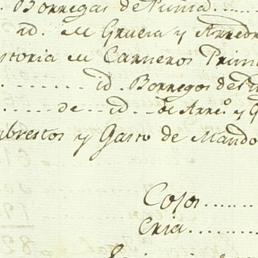 Borregas de Puma
id. de Grueia y Arredr
storia de Carneros Prim
id. Borregos de
de id. de Arre.s y G
brestos y Gasto de Mando
Cojos
Cria